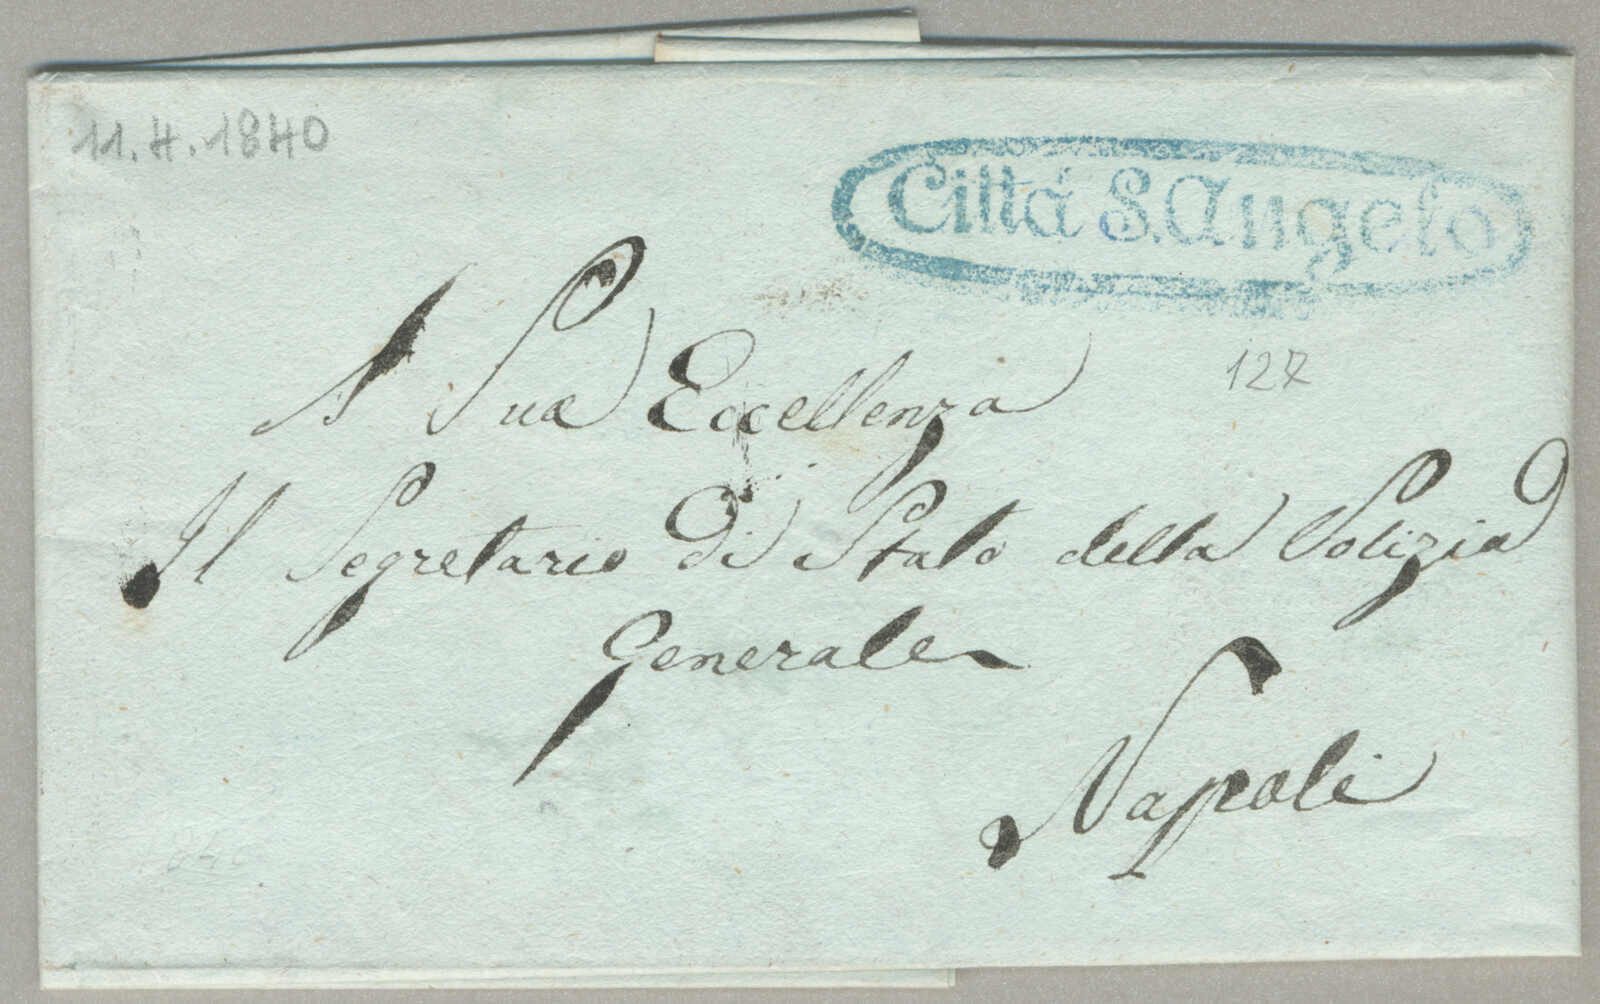 11.4.1840
Città S. Angelo
127
A Sua Eccellenza
Il Segretario di Stato della Polizia
Generale
Napoli